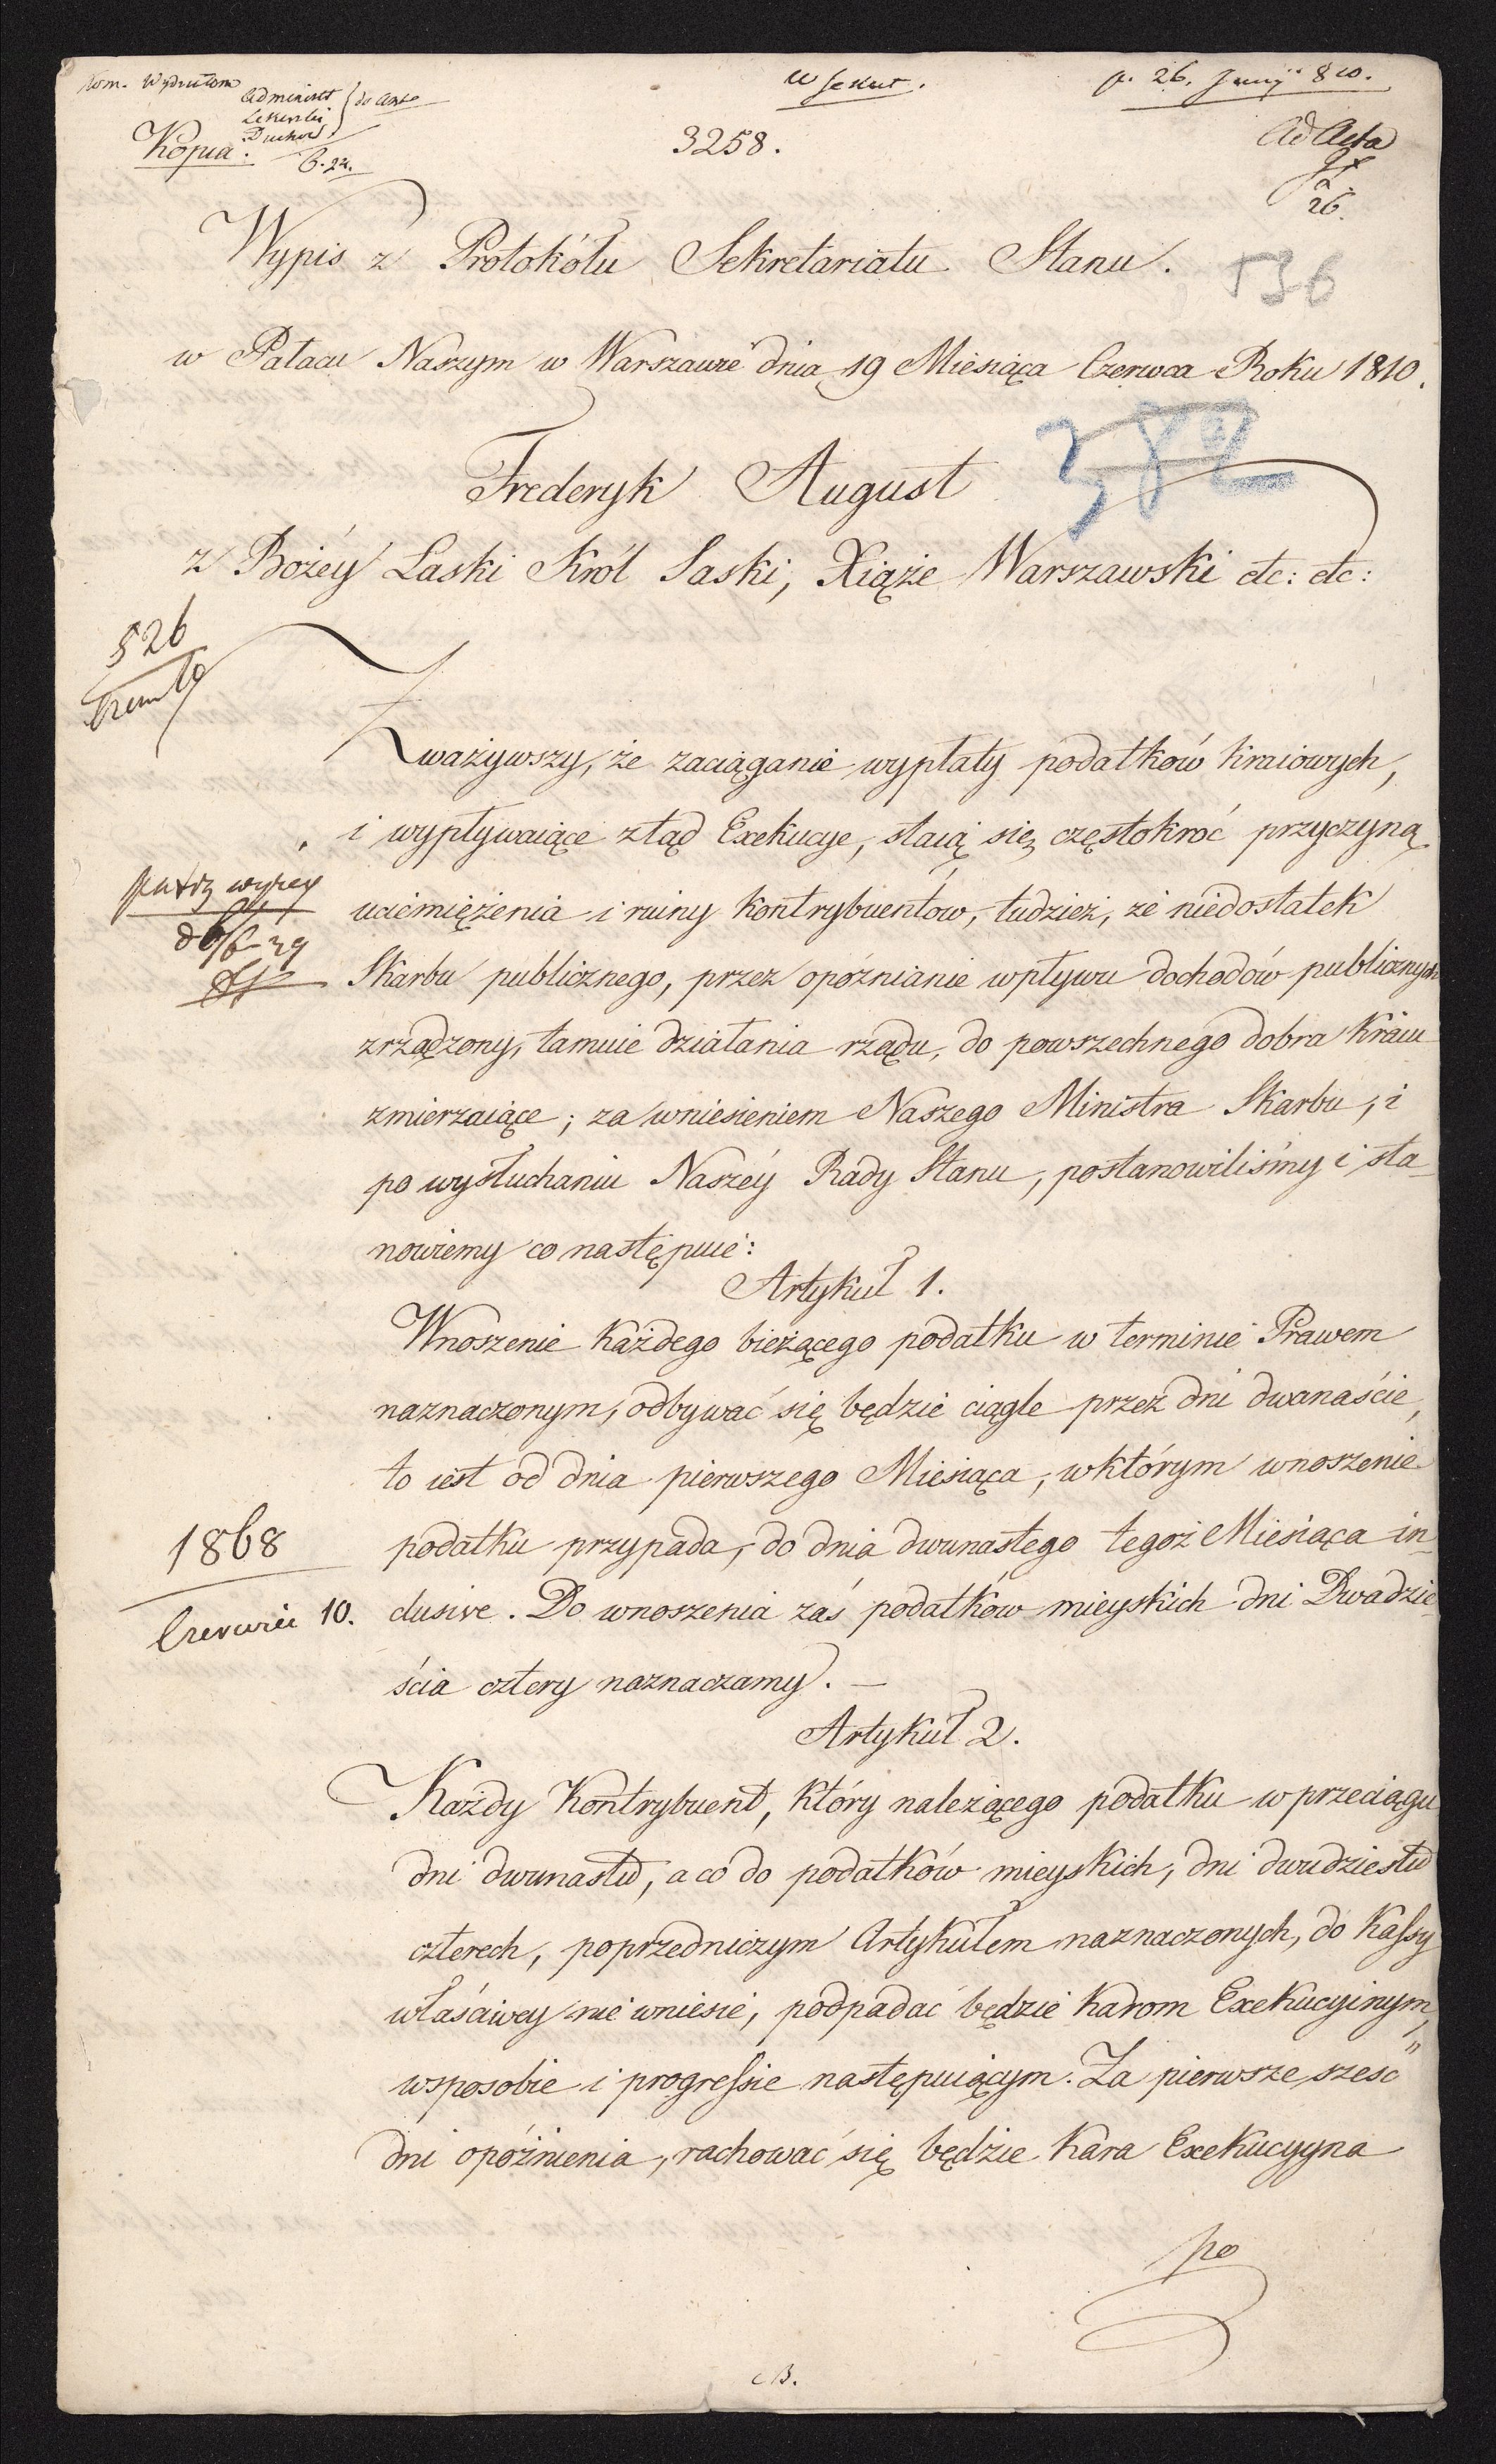 Kopia.
3258.
p. 26. Junij 810.
Ad Acta
26.
Wypis z Protokółu Sekretariatu Stanu.
536
w Pałacu Naszym w Warszawie dnia 19 Miesiąca Czerwca Roku 1810.
382
Frederyk August
z Bożéy Łaski Król Saski, Xiąże Warszawski etc: etc:
526
Zważywszy, że zaciąganie wypłaty podatków kraiowych,
i wypływaiące ztąd Exekucye, staią się częstokroć przyczyną
uciemiężenia i ruiny kontrybuentow, tudzież, że niedostatek
Skarbu publicznego, przez opóznianie wpływu dochodów publicznych
zrządzony, tamuie działania rządu, do powszechnego dobra kraiu
zmierzaiące; za wniesieniem Naszego Ministra Skarbu, i
po wysłuchaniu Naszéy Rady Stanu, postanowiliśmy i sta-
nowiemy co następuie:
Artykuł 1.
Wnoszenie każdego bieżącego podatku w terminie Prawem
naznaczonym, odbywać się będzie ciągle przez dni dwanaście,
to iest od dnia pierwszego Miesiąca, w którym wnoszenie
podatku przypada, do dnia dwunastego tegoż Miesiąca in-
clusive. Do wnoszenia zaś podatków mieyskich dni Dwadzie-
ścia cztery naznaczamy. —
1868
Czerwiec 10.
Artykuł 2.
Każdy Kontrybuent, który należącego podatku w przeciągu
dni dwunastu, a co do podatków mieyskich, dni dwudziestu
czterech, poprzedniczym Artykułem naznaczonych, do Kassy
właściwey nie wniesie, podpadać będzie karom Exekucyinym,
wsposobie i progressie następuiącym. Za pierwsze sześć
dni opóźnienia, rachować się będzie kara Exekucyyna
po
B.